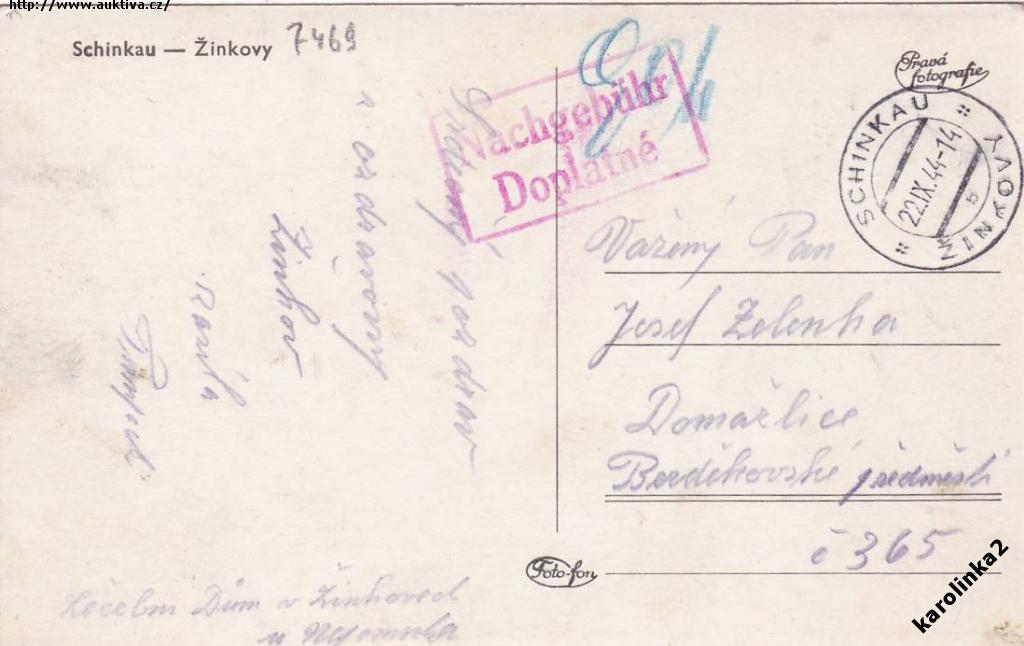 http://www.auktiva.cz/
Schinkau — Žinkovy 7469
Pravá
fotografie
SCHINKAU
ŽINKOVY
22.IX.44-14
b
Nachgebühr
Doplatné
Srdečný pozdrav
z ozdravovny
Žinkov
Vážený Pan
Josef Zelenka
Domažlice
předměstí
č 365
Foto-fon
Léčební Dům v Žinkovech
u Nepomuka
karolinka2